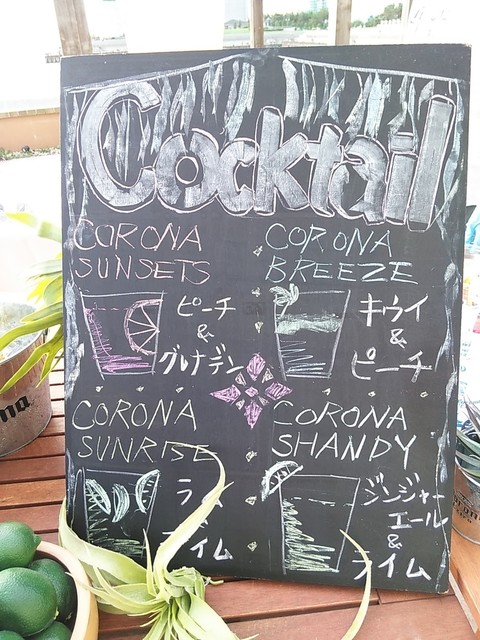 Cocktail
CORONA
SUNSETS
ピーチ
&
グレナデン
CORONA
BREEZE
キウイ
&
ピーチ
CORONA
SUNRISE
ラム
ライム
CORONA
SHANDY
ジンジャー
エール
&
ライム